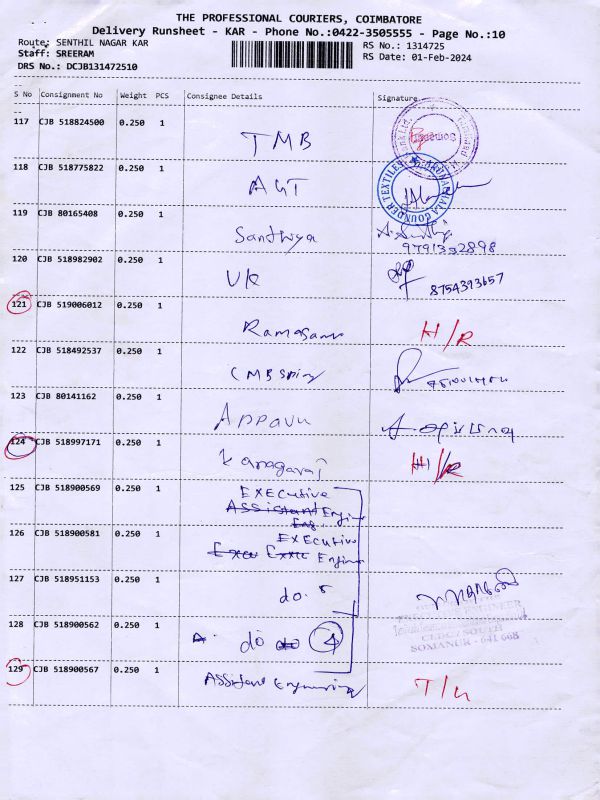 THE PROFESSIONAL COURIERS, COIMBATORE
Delivery Runsheet - KAR - Phone No.:0422-3505555 - Page No.:10
Route: SENTHIL NAGAR KAR
Staff: SREERAM
DRS No.: DCJB131472510
RS No.: 1314725
RS Date: 01-Feb-2024
S No Consignment No Weight PCS Consignee Details Signature
117 CJB 518824500 0.250 1 TMB
118 CJB 518775822 0.250 1 AGT
TEXTILES ARUNACHALA GOUNDER
119 CJB 80165408 0.250 1 Santhiya
9791332898
120 CJB 518982902 0.250 1 VK
8754393657
121 CJB 519006012 0.250 1 Ramasamy H/R
122 CJB 518492537 0.250 1 CMB Sping
123 CJB 80141162 0.250 1 Appavu
124 CJB 518997171 0.250 1 Kanagaraj H/R
125 CJB 518900569 0.250 1 Executive
Assistant Engine
Eng.
126 CJB 518900581 0.250 1 Executive
Engine
127 CJB 518951153 0.250 1 do.
128 CJB 518900562 0.250 1 do 4
SOUTH
SOMANUR - 641 668
129 CJB 518900567 0.250 1 Assistant Engineering